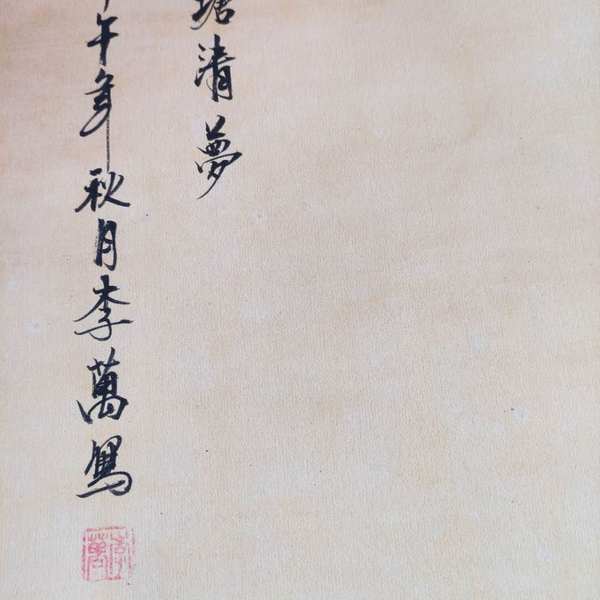 塘清夢
午年秋月李萬寫
李萬